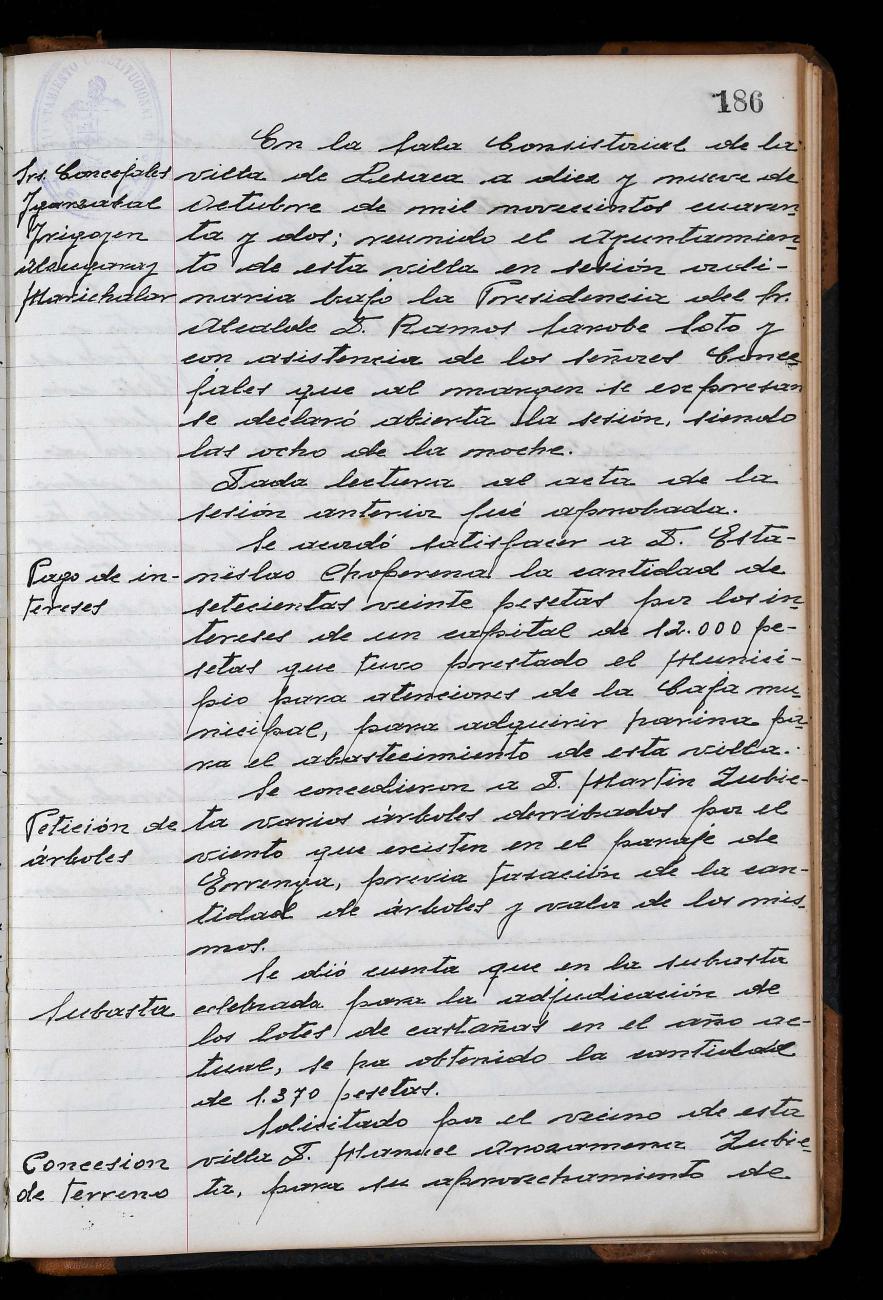 186
AYUNTAMIENTO CONSTITUCIONAL
En la Sala Consistorial de la
Srs. Concejales
villa de Lesaca a diez y nueve de
Ygarzabal
Octubre de mil novecientos cuaren-
Yrigoyen
ta y dos; reunido el Ayuntamien-
Alzugaray
to de esta villa en sesión ordi-
Marichalar
naria bajo la Presidencia del Sr.
Alcalde D. Ramos Sarobe Soto y
con asistencia de los señores Conce-
jales que al margen se expresan
se declaró abierta la sesión, siendo
las ocho de la noche.
Dada lectura al acta de la
sesión anterior fué aprobada.
Se acordó satisfacer a D. Esta-
Pago de in-
tereses
nislao Choperena la cantidad de
setecientas veinte pesetas por los in-
tereses de un capital de 12.000 pe-
setas que tuvo prestado el Munici-
pio para atenciones de la Caja mu-
nicipal, para adquirir harina pa-
ra el abastecimiento de esta villa.
Se concedieron a D. Martin Zubie-
Petición de
árboles
ta varios árboles derribados por el
viento que existen en el paraje de
previa tasación de la can-
tidad de árboles y valor de los mis-
mos.
Se dió cuenta que en la subasta
Subasta
celebrada para la adjudicación de
los lotes de castañas en el año ac-
tual, se ha obtenido la cantidad
de 1.370 pesetas.
Solicitado por el vecino de esta
Concesion
de terreno
villa D. Manuel Arozamena Zubie-
ta, para su aprovechamiento de